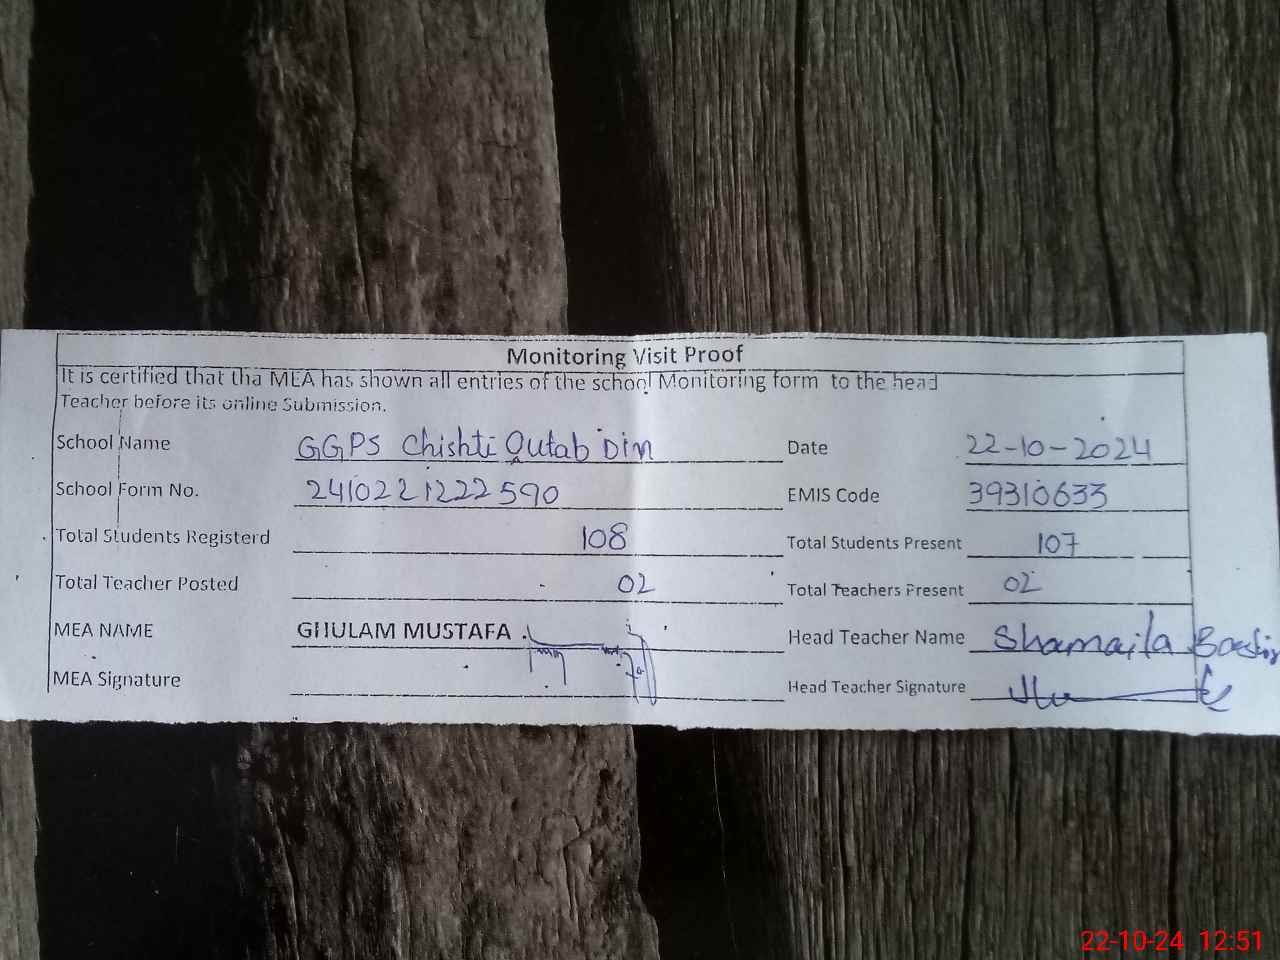 Monitoring Visit Proof
It is certified that tha MEA has shown all entries of the school Monitoring form to the head
Teacher before its online Submission.
School Name GGPS Chishti Qutab Din Date 22-10-2024
School Form No. 2410221222590 EMIS Code 39310633
Total Students Registerd 108 Total Students Present 107
Total Teacher Posted 02 Total Teachers Present 02
MEA NAME GHULAM MUSTAFA . Head Teacher Name Shamaila
MEA Signature Head Teacher Signature
22-10-24 12:51